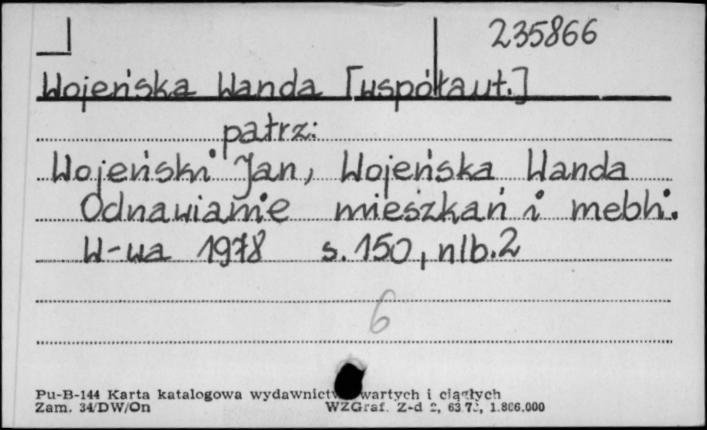 235866
Wojeńska Wanda [współaut.]
patrz:
Wojeński Jan, Wojeńska Wanda
Odnawianie mieszkań i mebli.
W-wa 1978 s. 150, nlb. 2
6
Pu-B-144 Karta katalogowa wydawnictw zwartych i ciągłych
Zam. 34/DW/On WZGraf. Z-d 2, 1.806.000